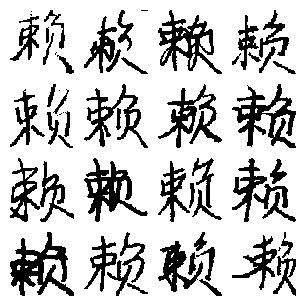 赖赖赖赖
赖赖赖赖
赖赖赖赖
赖赖赖赖